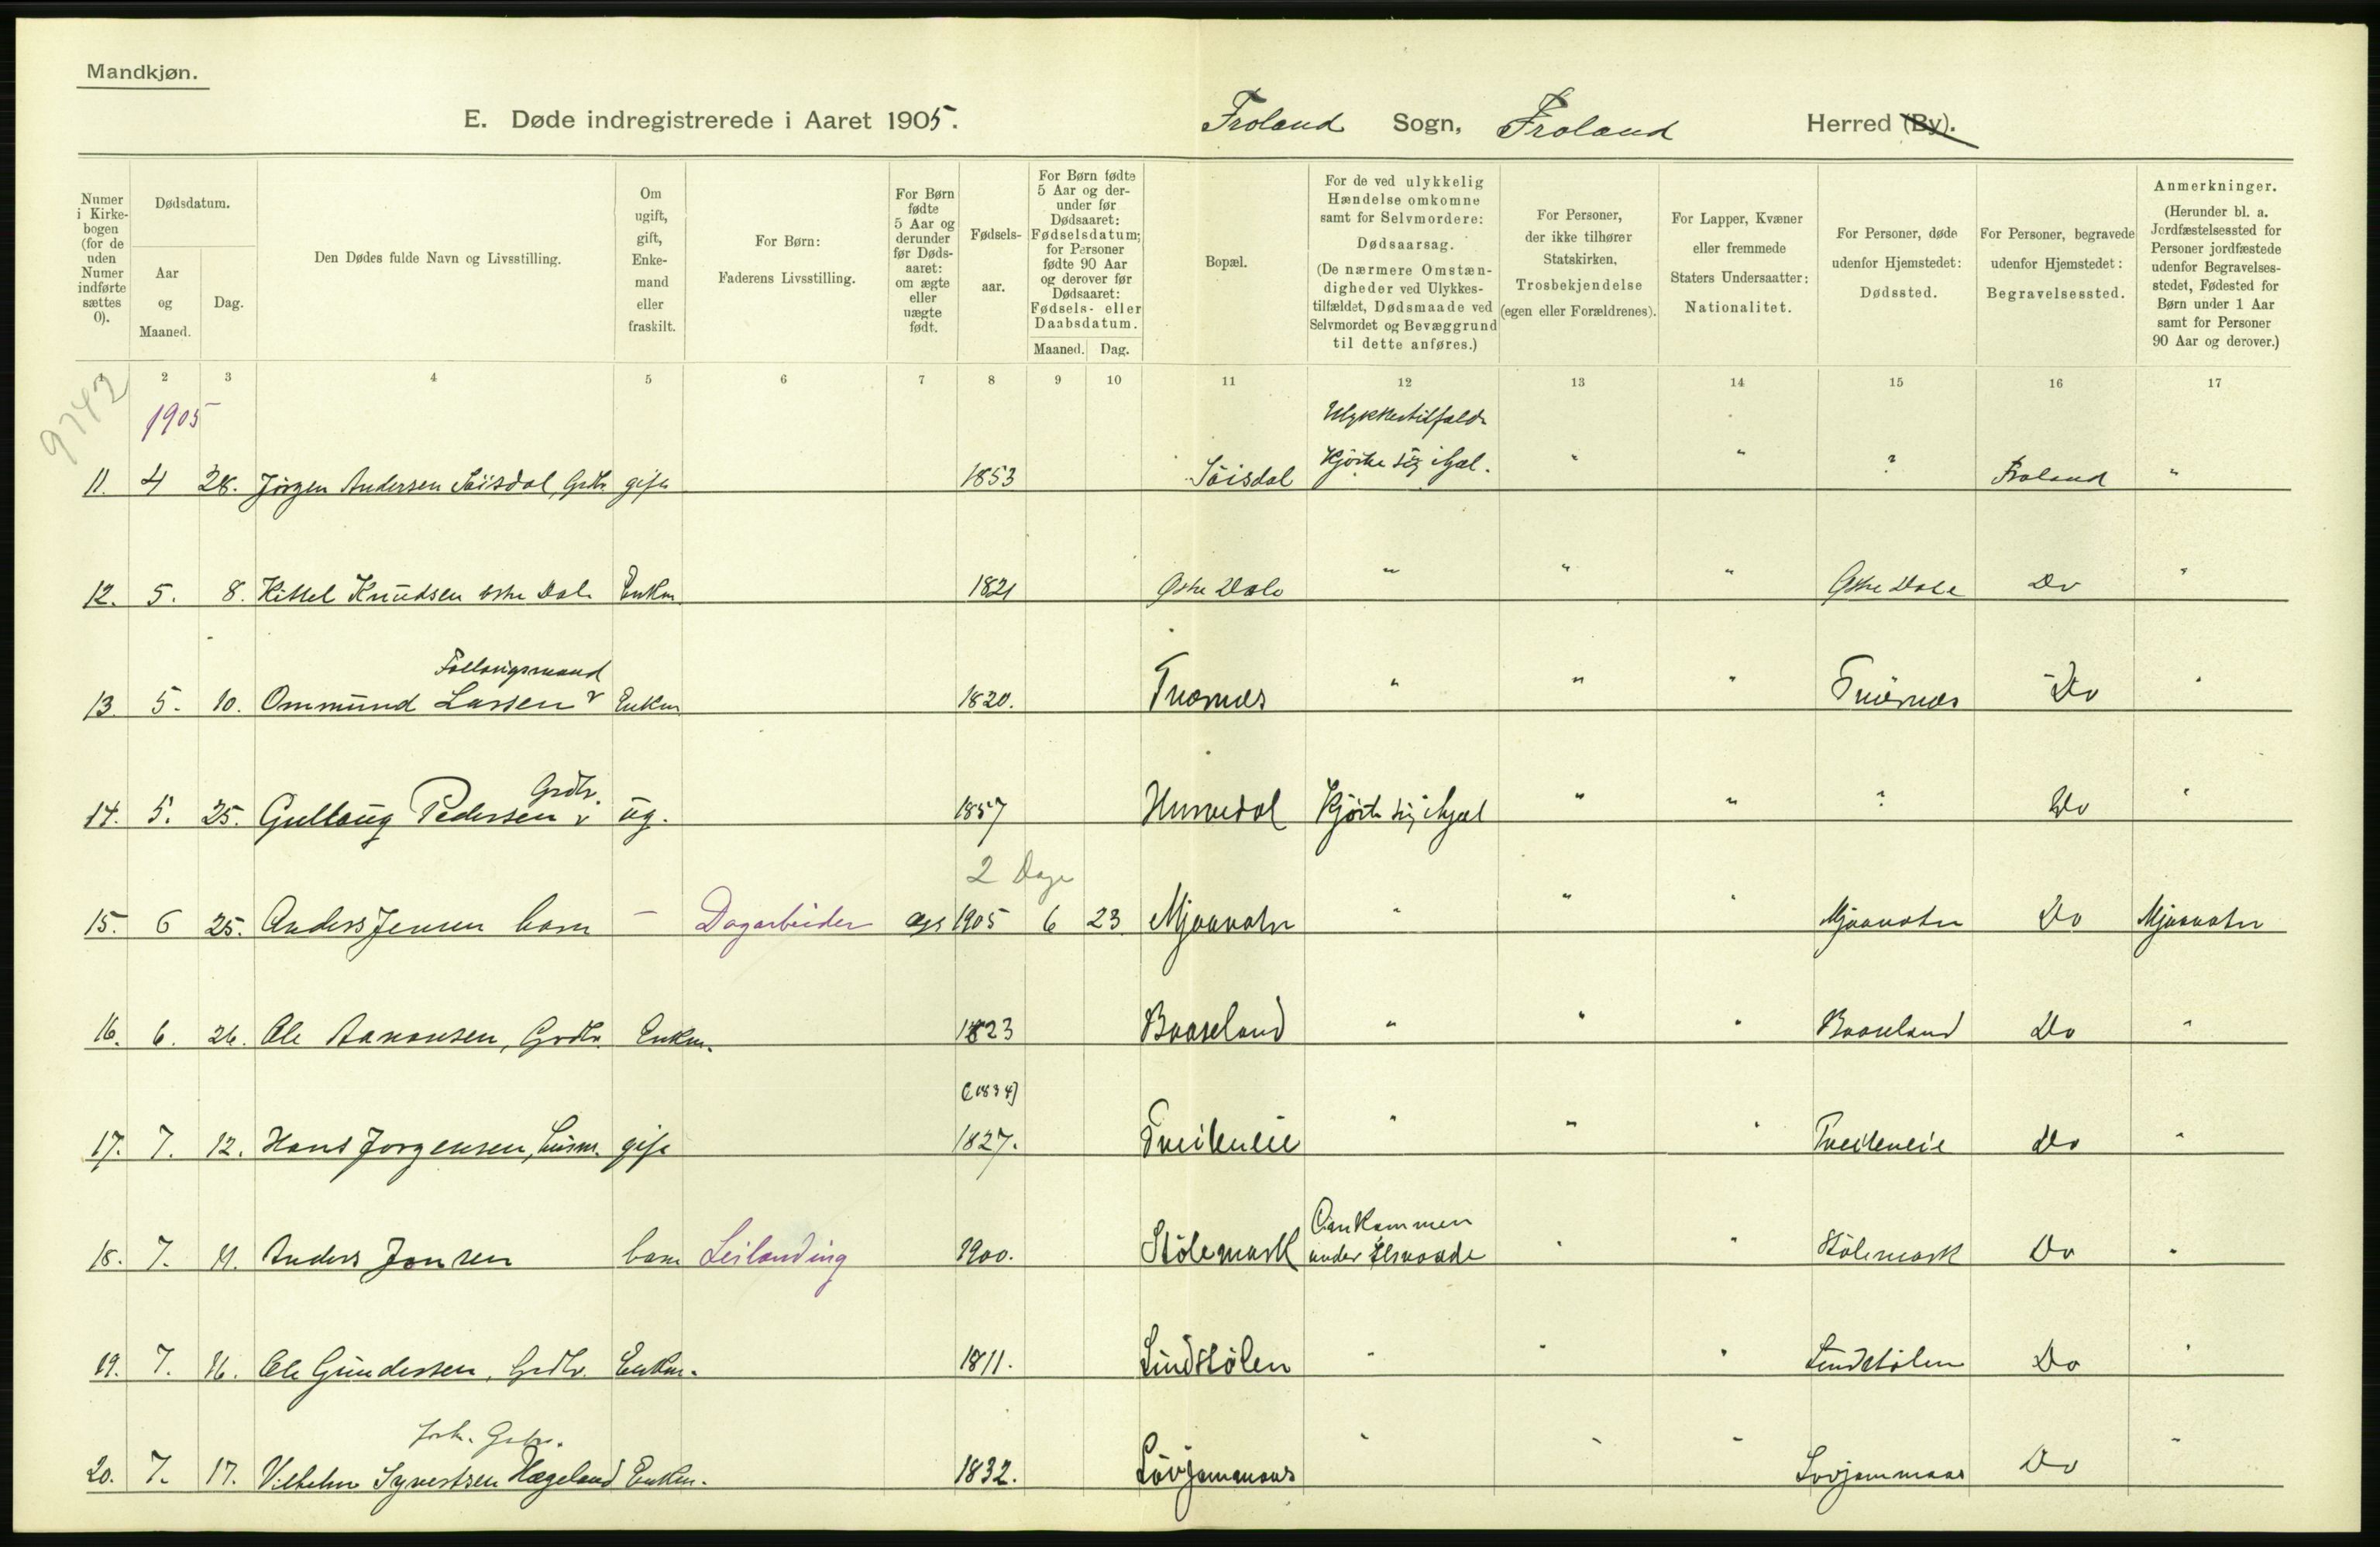 Mandkjøn.
E. Døde indregistrerede i Aaret 1905.
Froland Sogn, Froland Herred (By).
Numer i Kirke-bogen (for de uden Numer indførte sættes 0).
Dødsdatum.
Aar og Maaned.
Dag.
Den Dødes fulde Navn og Livsstilling.
Om ugift, gift, Enke-mand eller fraskilt.
For Børn: Faderens Livsstilling.
For Børn fødte 5 Aar og derunder før Døds-aaret: om ægte eller uægte født.
Fødsels-aar.
For Børn fødte 5 Aar og der-under før Dødsaaret: Fødselsdatum; for Personer fødte 90 Aar og derover før Dødsaaret: Fødsels- eller Daabsdatum.
Maaned. Dag.
Bopæl.
For de ved ulykkelig Hændelse omkomne samt for Selvmordere: Dødsaarsag. (De nærmere Omstæn-digheder ved Ulykkes-tilfældet, Dødsmaade ved Selvmordet og Bevæggrund til dette anføres.)
For Personer, der ikke tilhører Statskirken, Trosbekjendelse (egen eller Forældrenes).
For Lapper, Kvæner eller fremmede Staters Undersaatter: Nationalitet.
For Personer, døde udenfor Hjemstedet: Dødssted.
For Personer, begravede udenfor Hjemstedet: Begravelsessted.
Anmerkninger. (Herunder bl. a. Jordfæstelsessted for Personer jordfæstede udenfor Begravelses-stedet, Fødested for Børn under 1 Aar samt for Personer 90 Aar og derover.)
1 2 3 4 5 6 7 8 9 10 11 12 13 14 15 16 17
9742
1905
Ulykkestilfælde
11. 4 28. Jørgen Andersen Söisdal, Grdbr gift 1853 Söisdal Kjørte sig ihjel. " " ? Froland "
12. 5. 8. Kittel Knudsen østre Dale Enkm 1821 Østre Dale " " " Østre Dale Do "
Follaugsmand
13. 5. 10. Ommund Larsen v Enkm 1820. " " " Do "
Grdbr.
14. 5. 25. Gullaug Pedersen v ug. 1857 Hurvedal Kjørte sig ihjel " " ? Do "
2 Dage
15. 6 25. Anders Jensen barn – Dagarbeider ægte 1905 6 23 Mjaavatn " " " Mjaavatn Do Mjaavatn
16. 6. 26. Ole Aanonsen, Grdbr. Enkm. 1823 Baaseland " " " Baaseland Do "
(1834)
17. 7. 12. Hans Jorgensen, husm. gift 1827. Tveiteneie " " " Tveiteneie Do "
Omkommen
18. 7. 11. Anders Jensen barn Leilending 1900. Stölemark under Ildsvaade " " Stölemark Do "
19. 7. 16. Ole Gundersen, Grdbr. Enkm. 1811. Lindtölen " " " Lindtölen Do "
forh. Grdbr.
20. 7. 17. Vilhelm Syvertsen Hægeland Enkm. 1832. Lövjommaas " " " Lovjommaas Do "